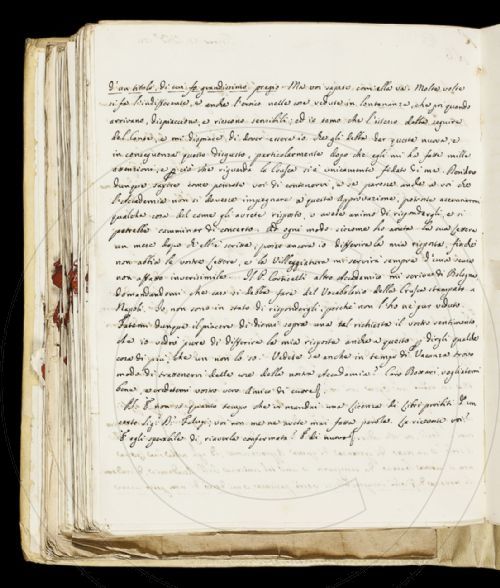 d'un titolo, di cui fa grandissimo pregio. Ma voi sapete com'ella va. Molte volte
si fa l'indifferente, e anche l'eroico nelle cose vedute in lontananza, che poi quando
arrivano, dispiacciono, e riescono sensibili; ed io temo che l'istesso debba seguire
del Conte, e mi dispiace di dover essere io che gli debba dar questa nuova, e
in conseguenza questo disgusto, particolarmente dopo che egli mi ha fatte mille
attenzioni, e che riguardo la Crusca si è unicamente fidato di me. Bramo
dunque sapere come potreste voi di contenervi, e se paresse anche a voi che
l'Accademia non si dovesse impegnare a questa Approvazione, potreste accennarmi
qualche cosa del come gli avreste risposto, o avete animo di rispondergli, e si
potrebbe camminar di concerto. Ad ogni modo siccome ho avuta la sua Lettera
un mese dopo ch'ella è scritta, posso ancora io differire la mia risposta, finché
non abbia la vostra Lettera, e la Villeggiatura mi servirà sempre d'una scusa
non affatto inverisimile. Il P. Corticelli altro Accademico mi scrive di Bologna
domandandomi che cosa si debba fare del Vocabolario della Crusca stampato a
Napoli. Io non sono in stato di rispondergli, perché non l'ho né pur veduto.
Fatemi dunque il piacere di dirmi sopra una tal richiesta il vostro sentimento,
che io vedrò pure di differire la mia risposta anche a questo, e dirgli qualche
cosa di più, che un non lo so. Vedete se anche in tempo di Vacanza trovo
modo di trattenervi delle cose della nostra Accademia? Caro Bottari vogliatemi
bene, e credetemi vostro vero Amico di cuore.
P.S. È non so quanto tempo che vi mandai una Licenza di Libri proibiti d'un
certo Sig.
voi non me ne avete mai fatto parola. La riceveste voi?
È egli sperabile di riaverla confermata? Addio di nuovo.